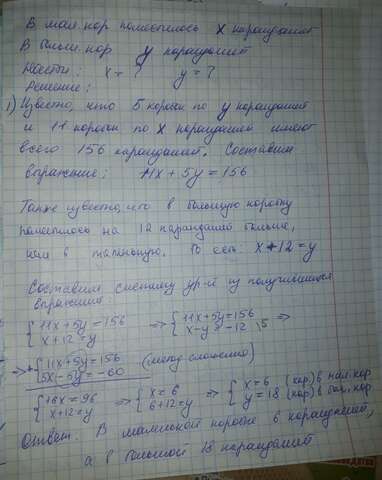 В мал. кор поместилось x карандашей
В больш. кор y карандашей
Найти: x = ? y = ?
Решение:
1) Известно, что 5 коробок по y карандашей
и 11 коробок по x карандашей имеют
всего 156 карандашей. Составим
выражение: 11x + 5y = 156
Также известно, что в большую коробку
поместилось на 12 карандашей больше,
чем в маленькую. То есть: x + 12 = y
Составим систему ур-й из получившихся
выражений:
{ 11x + 5y = 156 => { 11x + 5y = 156 =>
{ x + 12 = y { x - y = -12 |5
=> + { 11x + 5y = 156 (метод сложения)
{ 5x - 5y = -60
{ 16x = 96 => { x = 6 => { x = 6 (кар) в мал. кор
{ x + 12 = y { 6 + 12 = y { y = 18 (кар) в бол. кор
Ответ. В маленькой коробке 6 карандашей,
а в большой 18 карандашей